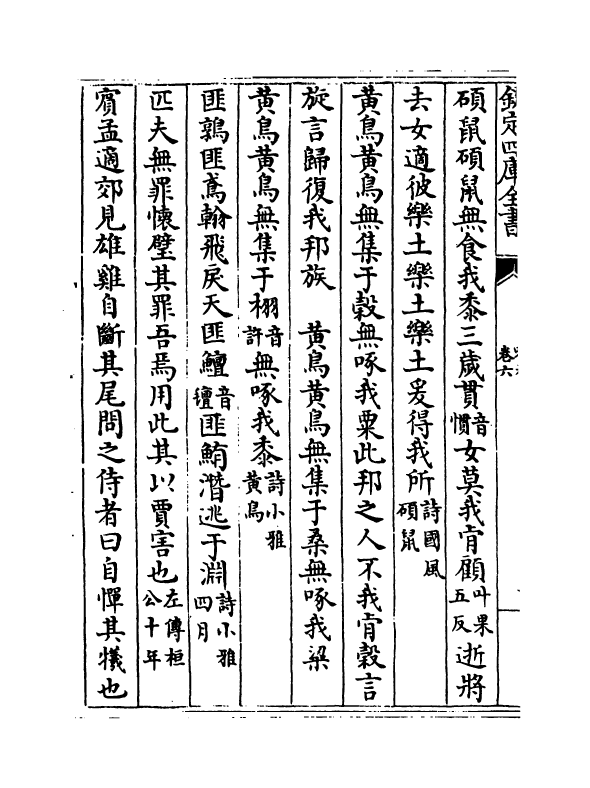 欽定四庫全書
卷六
碩鼠碩鼠無食我黍三歲貫音慣女莫我肯顧叶果五反逝將
去女適彼樂土樂土樂土爰得我所詩國風碩鼠
黄鳥黄鳥無集于穀無啄我粟此邦之人不我肯穀言
旋言歸復我邦族　黄鳥黄鳥無集于桑無啄我粱
黄鳥黄鳥無集于栩音許無啄我黍詩小雅黄鳥
匪鶉匪鳶翰飛戾天匪鱣音氊匪鮪潛逃于淵詩小雅四月
匹夫無罪懷璧其罪吾焉用此其以賈害也左傳桓公十年
賔孟適郊見雄雞自斷其尾問之侍者曰自憚其犧也